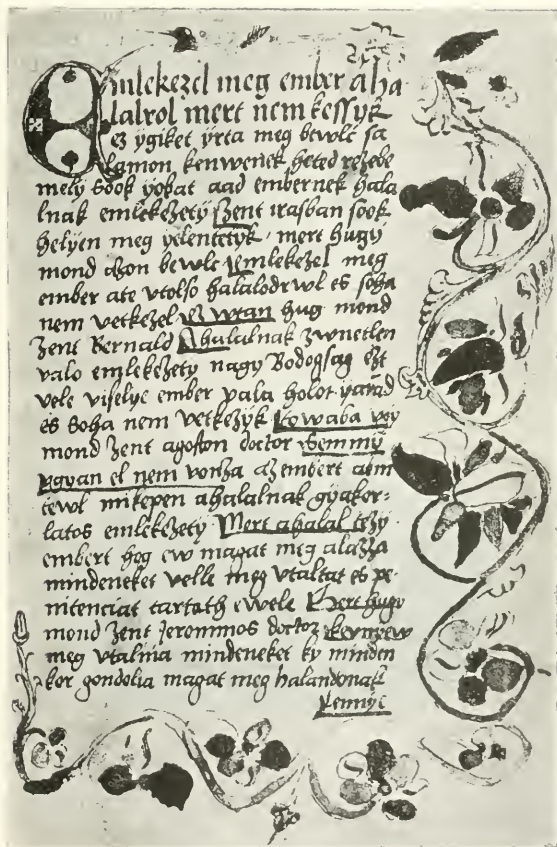 Emlekezel meg ember a ha
lalrol mert nem kessyk
Ez ygiket yrta meg bewlc sa
lamon kenwenek heted rezebe
mely Sook yokat aad embernek hala
lnak emlekezety Szent irasban sook
helyen meg yelentetyk mert hugy
mond azon bewlc Emlekezel meg
ember ate vtolso halalodrwl es soha
nem vetkezel Ez vtan hug mond
Zent Bernald Ahalalnak zwnetlen
valo emlekezety nagy Bodogsag ezt
vele viselye ember vala holot yarad
es Soha nem vetkezyk Towaba vgy
mond Zent agoston doctor Semmy
vgyan el nem vonza az embert
tewl mikepen ahalalnak gyakor=
latos emlekezety Mert ahalal tezy
embert hog ew magat meg alazza
mindeneket velle meg vtaltat es pe-
nitenciat tartath ewele Mert hugy
mond Zent Jerommos doctor kenyew
meg vtalnia mindeneket ky minden
kor gondolia magat meg halandonak
Kennye